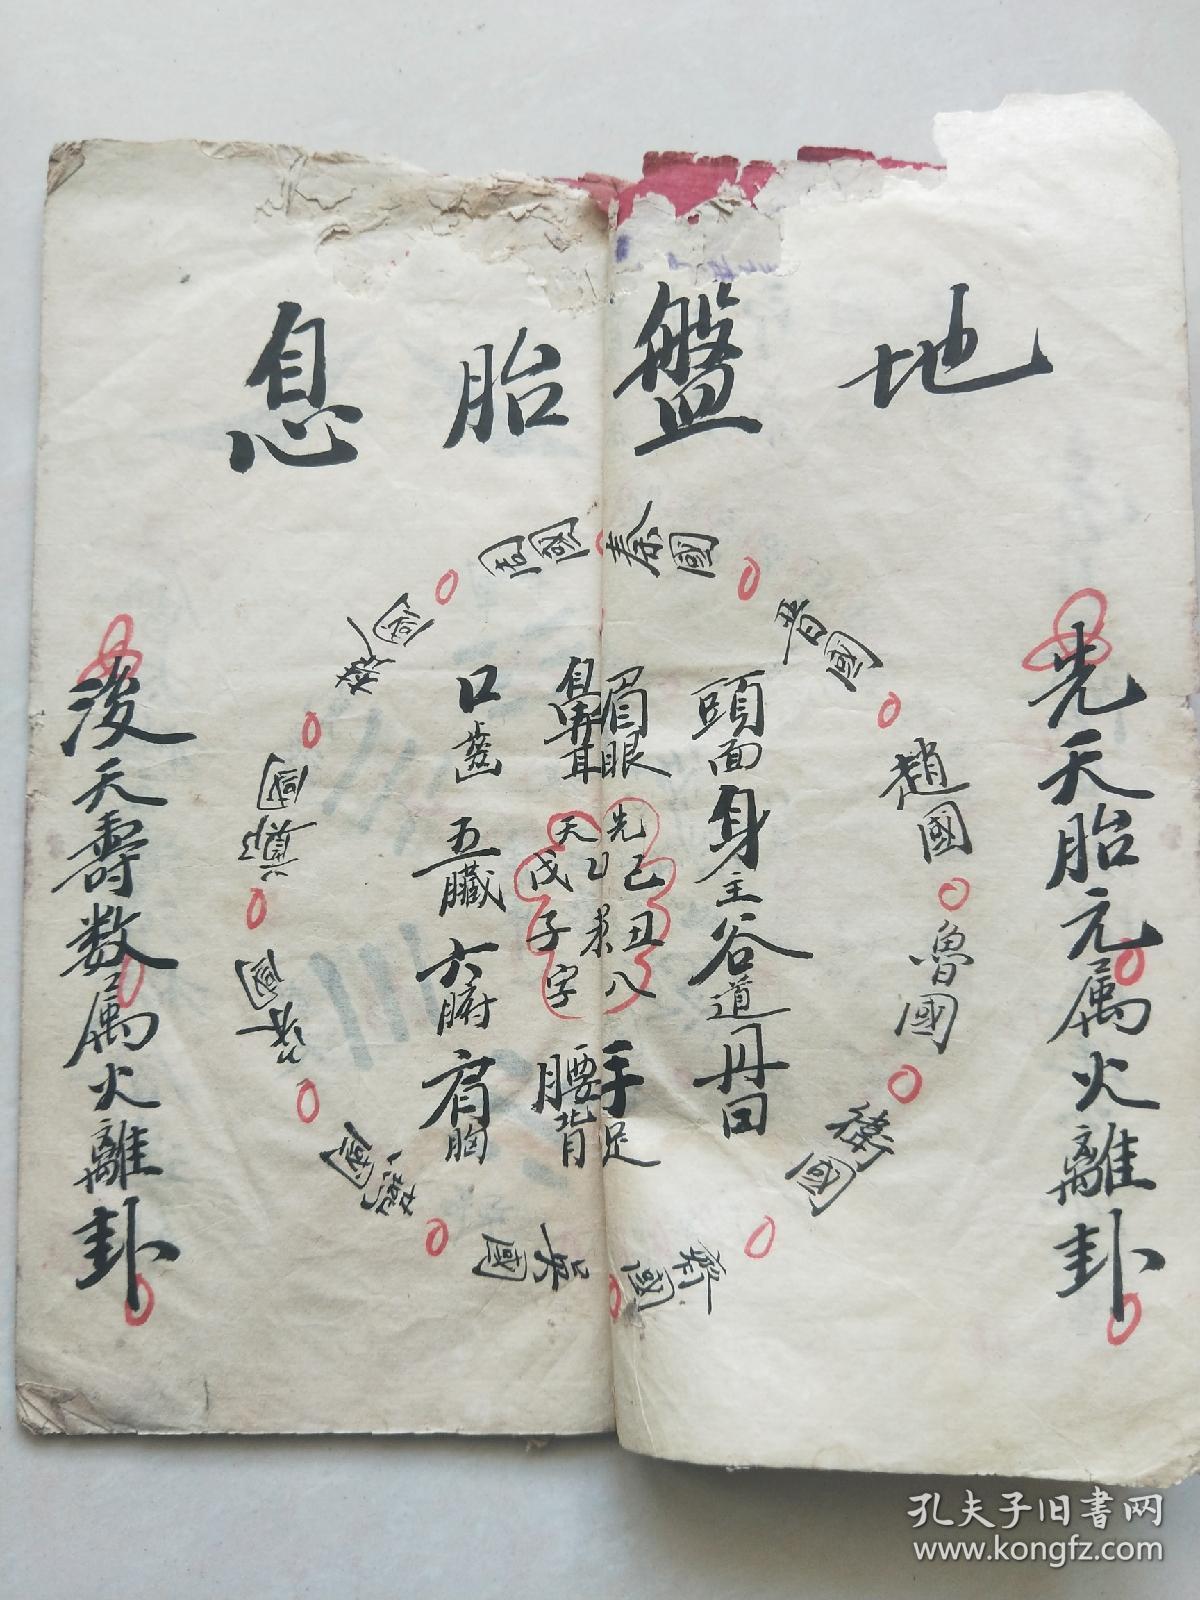 地盤胎息
先天胎元属火離卦
秦國
晋國
趙國
魯國
衛國
齊國
吳國
燕國
宋國
鄭國
楚國
周國
頭面身主谷道丹田
眉眼
鼻耳
先己丑八
天
戊子字
手足
腰背
口齒五臟六腑肩胸
後天壽数属火離卦
孔夫子旧书网
www.kongfz.com